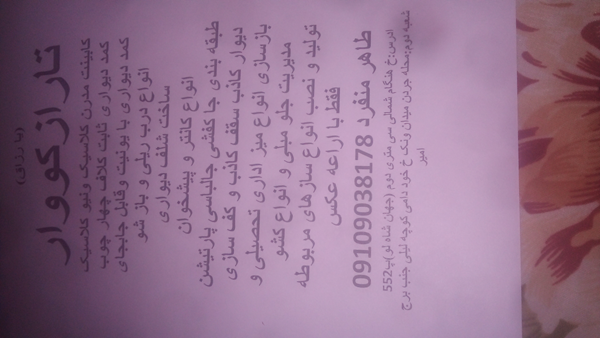 (یا رزاق)
تاراز کووار
کابینت مدرن کلاسیک ونیو کلاسیک
کمد دیواری ثابت کلاف چهار چوب
کمد دیواری با یونیت وقابل جابجای
انواع درب ریلی و باز شو
ساخت شلف دیواری
انواع کانتر و پیشخوان
طبقه بندی جا کفشی جالباسی پارتیشن
دیوار کاذب سقف کاذب و کف سازی
بازسازی انواع میز اداری تحصیلی و
مدیریت جلو مبلی و انواع کشو
تولید و نصب انواع سازهای مربوطه
فقط با اراعه عکس
طاهر منفرد 09109038178
ادرس:خ هنگام شمالی سی متری دوم (جهان شاه لو)پ552
شعبه دوم:محله جردن میدان ونک خ خود دامی کوچه لیلی جنب برج
امیر